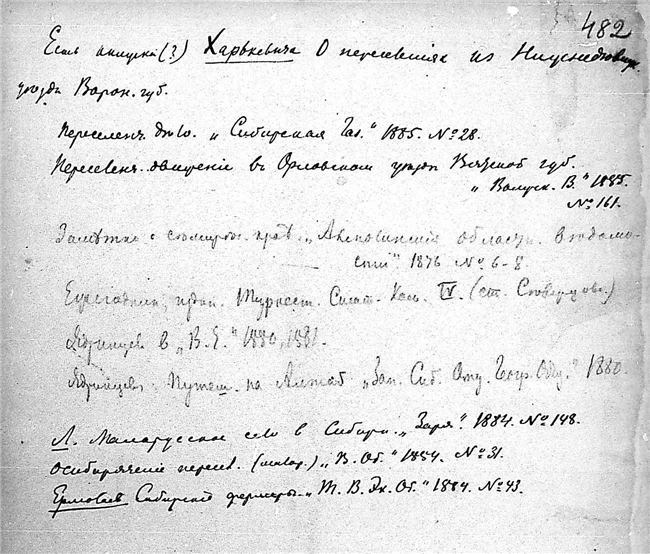 482
Есть книжка (?) Харькевича О переселениях из Нижнедевиц.
уезда Ворон. губ.
Переселенч. дѣло. „Сибирская Газ.“ 1885. № 28.
Переселенч. движение въ Орловском уезде Вятской губ.
„Волжск. В.“ 1885.
№ 161.
Заметка о „Акмолинския области. Ведомо-
сти“ 1876 № 6-8.
Ежегодник, Туркест. Стат. Ком. IV. (ст.
Ядринцев в „В. Е.“ 1880, 1881.
Ядринцев. Путеш. на Алтай „Зап. Сиб. Отд. Геогр. Общ.“ 1880.
Л. Малорусское село в Сибири. „Заря“. 1884. № 148.
переселен. „В. Об.“ 1884. № 31.
Ермолаев Сибирские фермеры. „Т. В. Эк. Об.“ 1884. № 43.